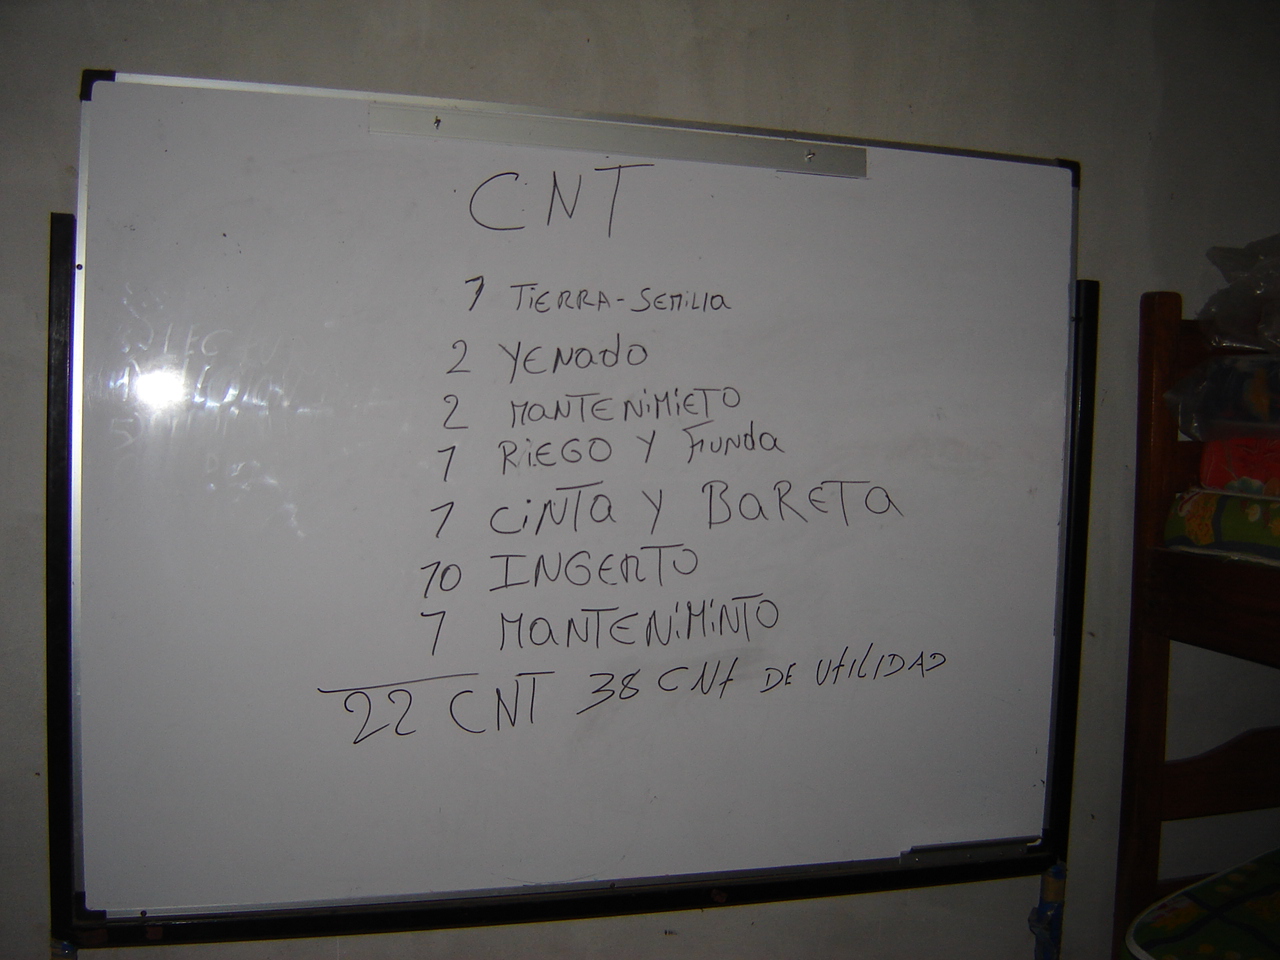 CNT
1 TiERRA-SEMillA
2 YENado
2 MaNTENiMiETO
1 RiEGO Y Funda
1 CiNTa Y BaRETa
10 INGERTO
1 MaNTENiMiNTO
22 CNT 38 CNt DE UtILIDAD